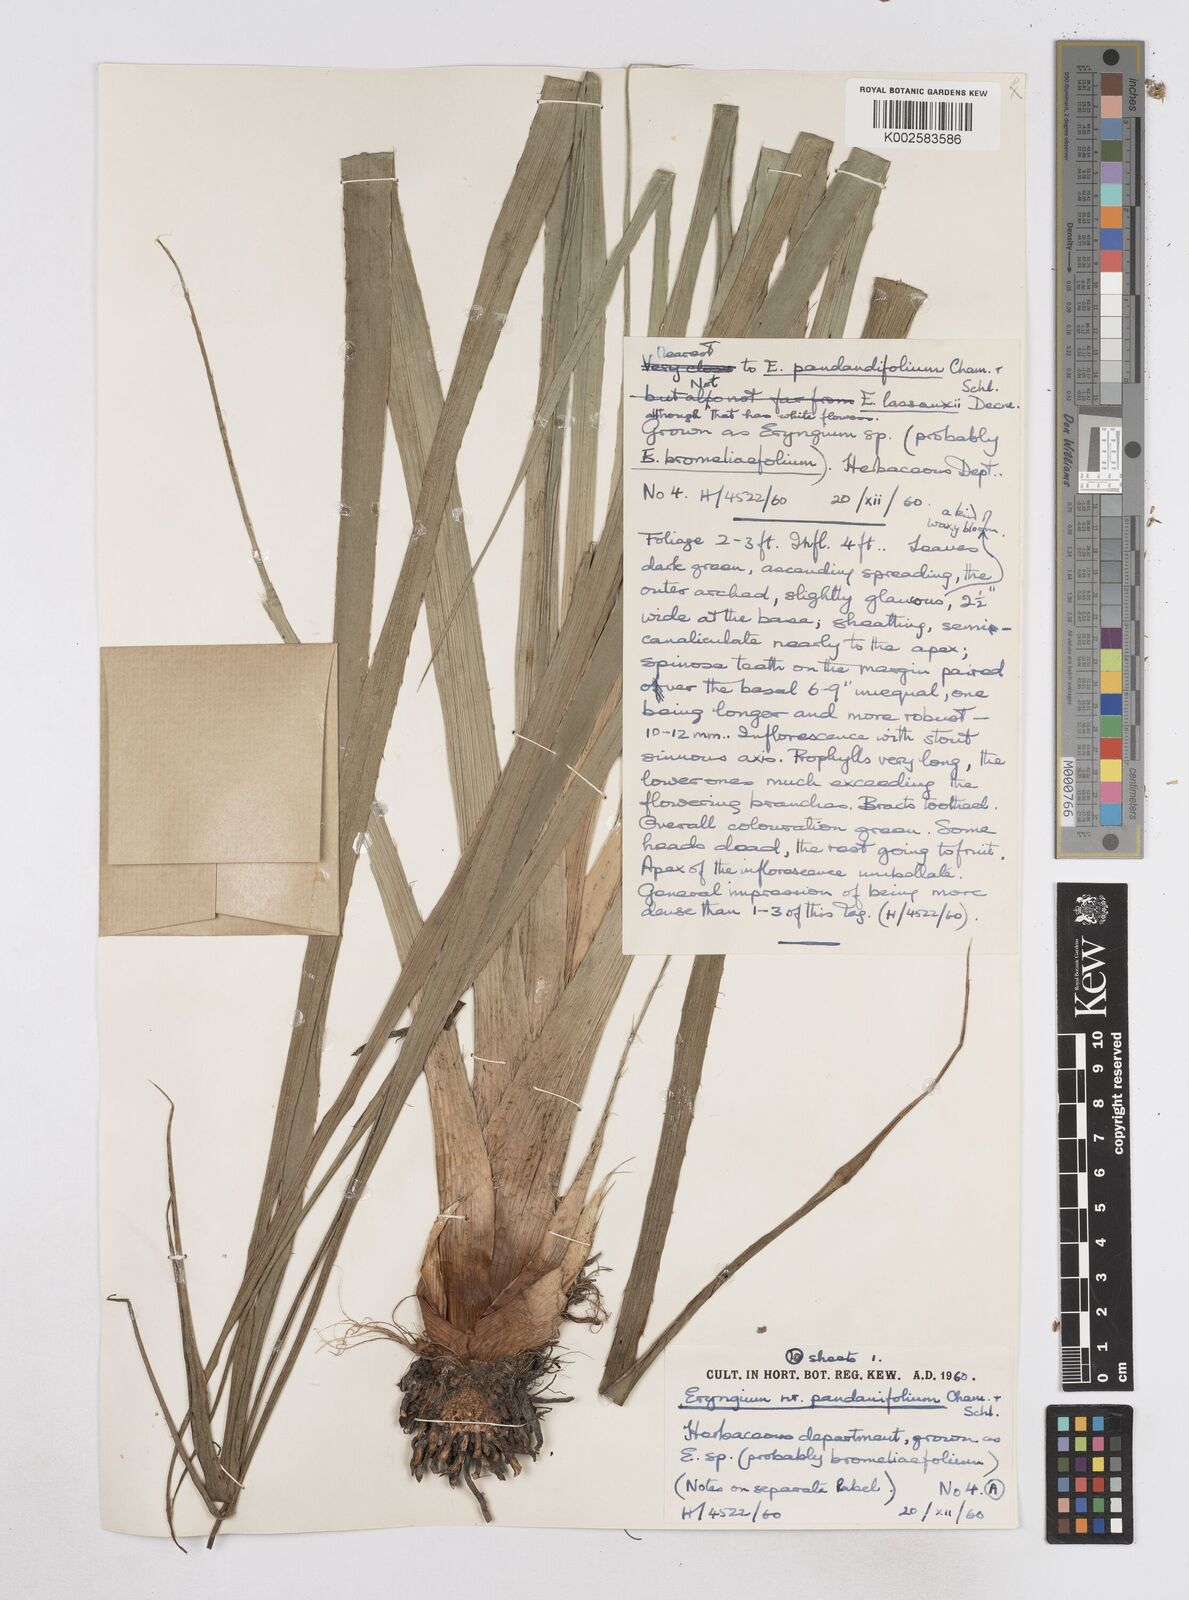 ROYAL BOTANIC GARDENS KEW
K002583586
Nearest
Very close to E. pandandifolium Cham. +
Schl.
Not
but also not far from E. lassauxii Decne.
although that has white flowers.
Grown as Eryngium sp. (probably
E. bromeliaefolium). Herbaceous Dept..
No 4. H/4522/60 20/xii/60.
a kind of
waxy bloom.
Foliage 2-3 ft. Infl. 4 ft.. Leaves
dark green, ascending spreading, the
outer arched, slightly glaucous, 2½"
wide at the base; sheathing, semi-
canaliculate nearly to the apex;
spinose teeth on the margin paired
over the basal 6-9" unequal, one
being longer and more robust -
10-12 mm.. Inflorescence with stout
sinuous axis. Prophylls very long, the
lower ones much exceeding the
flowering branches. Bracts toothed.
Overall colouration green. Some
heads dead, the rest going to fruit.
Apex of the inflorescence umbellate.
General impression of being more
dense than 1-3 of this Tag. (H/4522/60).
10 sheets 1.
CULT. IN HORT. BOT. REG. KEW. A.D. 1960.
Eryngium nr. pandanifolium Cham. +
Schl.
Herbaceous department, grown as
E. sp. (probably bromeliaefolium)
(Notes on separate label.) No 4. A
H/4522/60 20/xii/60
inches
centimetres
Density
Don Williams
M000766
Royal Botanic Gardens
Kew
copyright reserved
10
9
8
7
6
5
4
3
2
1
0
cm